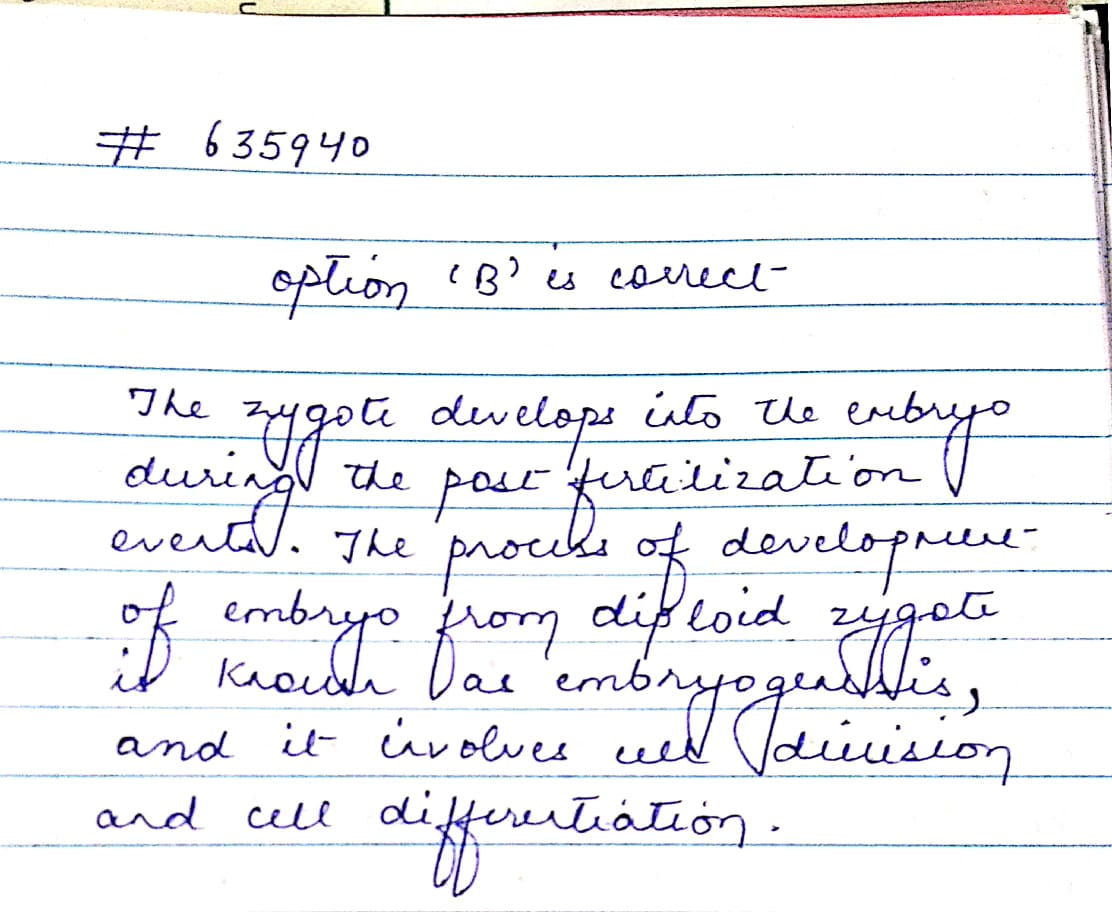 # 635940
option 'B' is correct
The zygote develops into the embryo
during the post fertilization
events. The process of development
of embryo from diploid zygote
is known as embryogenesis,
and it involves cell division
and cell differentiation.